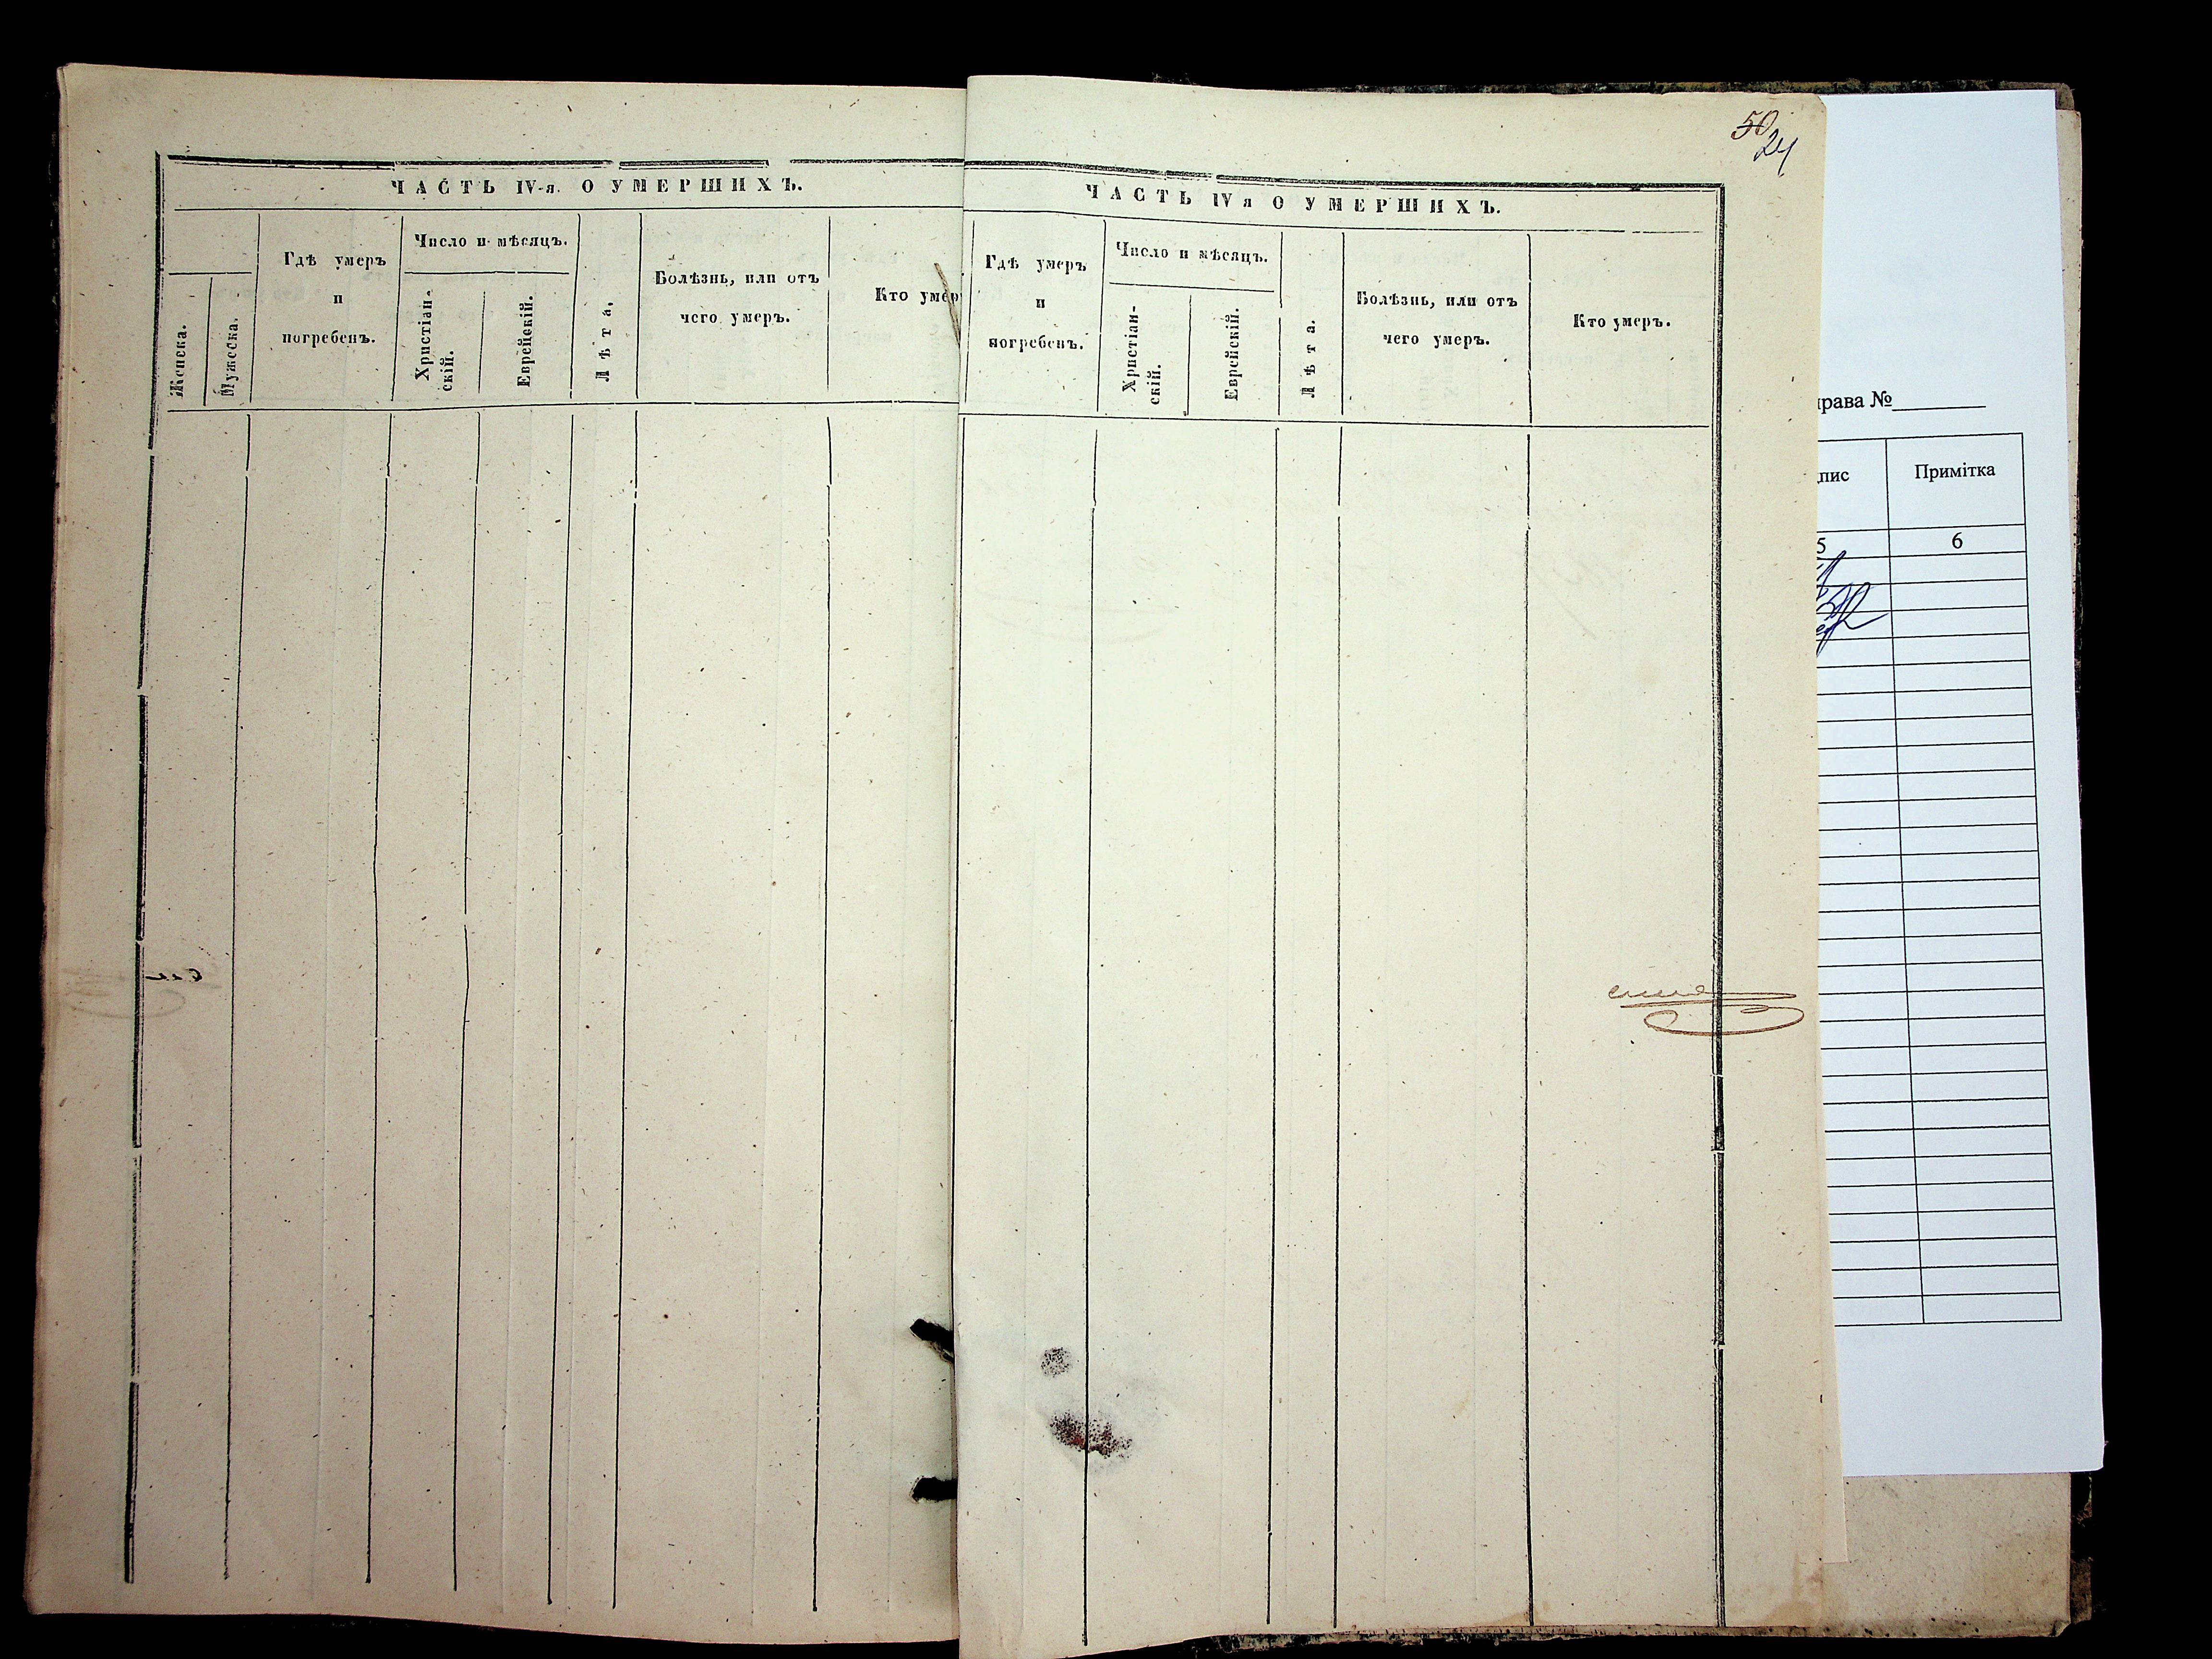 50
24
ЧАСТЬ IV-я. О УМЕРШИХЪ.
Женска.
Мужеска.
Гдѣ умеръ
и
погребенъ.
Число и мѣсяцъ.
Христіан-
скій.
Еврейскій.
Лѣта.
Болѣзнь, или отъ
чего умеръ.
Кто умер
ЧАСТЬ IV я О УМЕРШИХЪ.
Гдѣ умеръ
и
погребенъ.
Число и мѣсяцъ.
Христіан-
скій.
Еврейскій.
Лѣта.
Болѣзнь, или отъ
чего умеръ.
Кто умеръ.
права №
пис
Примітка
5
6